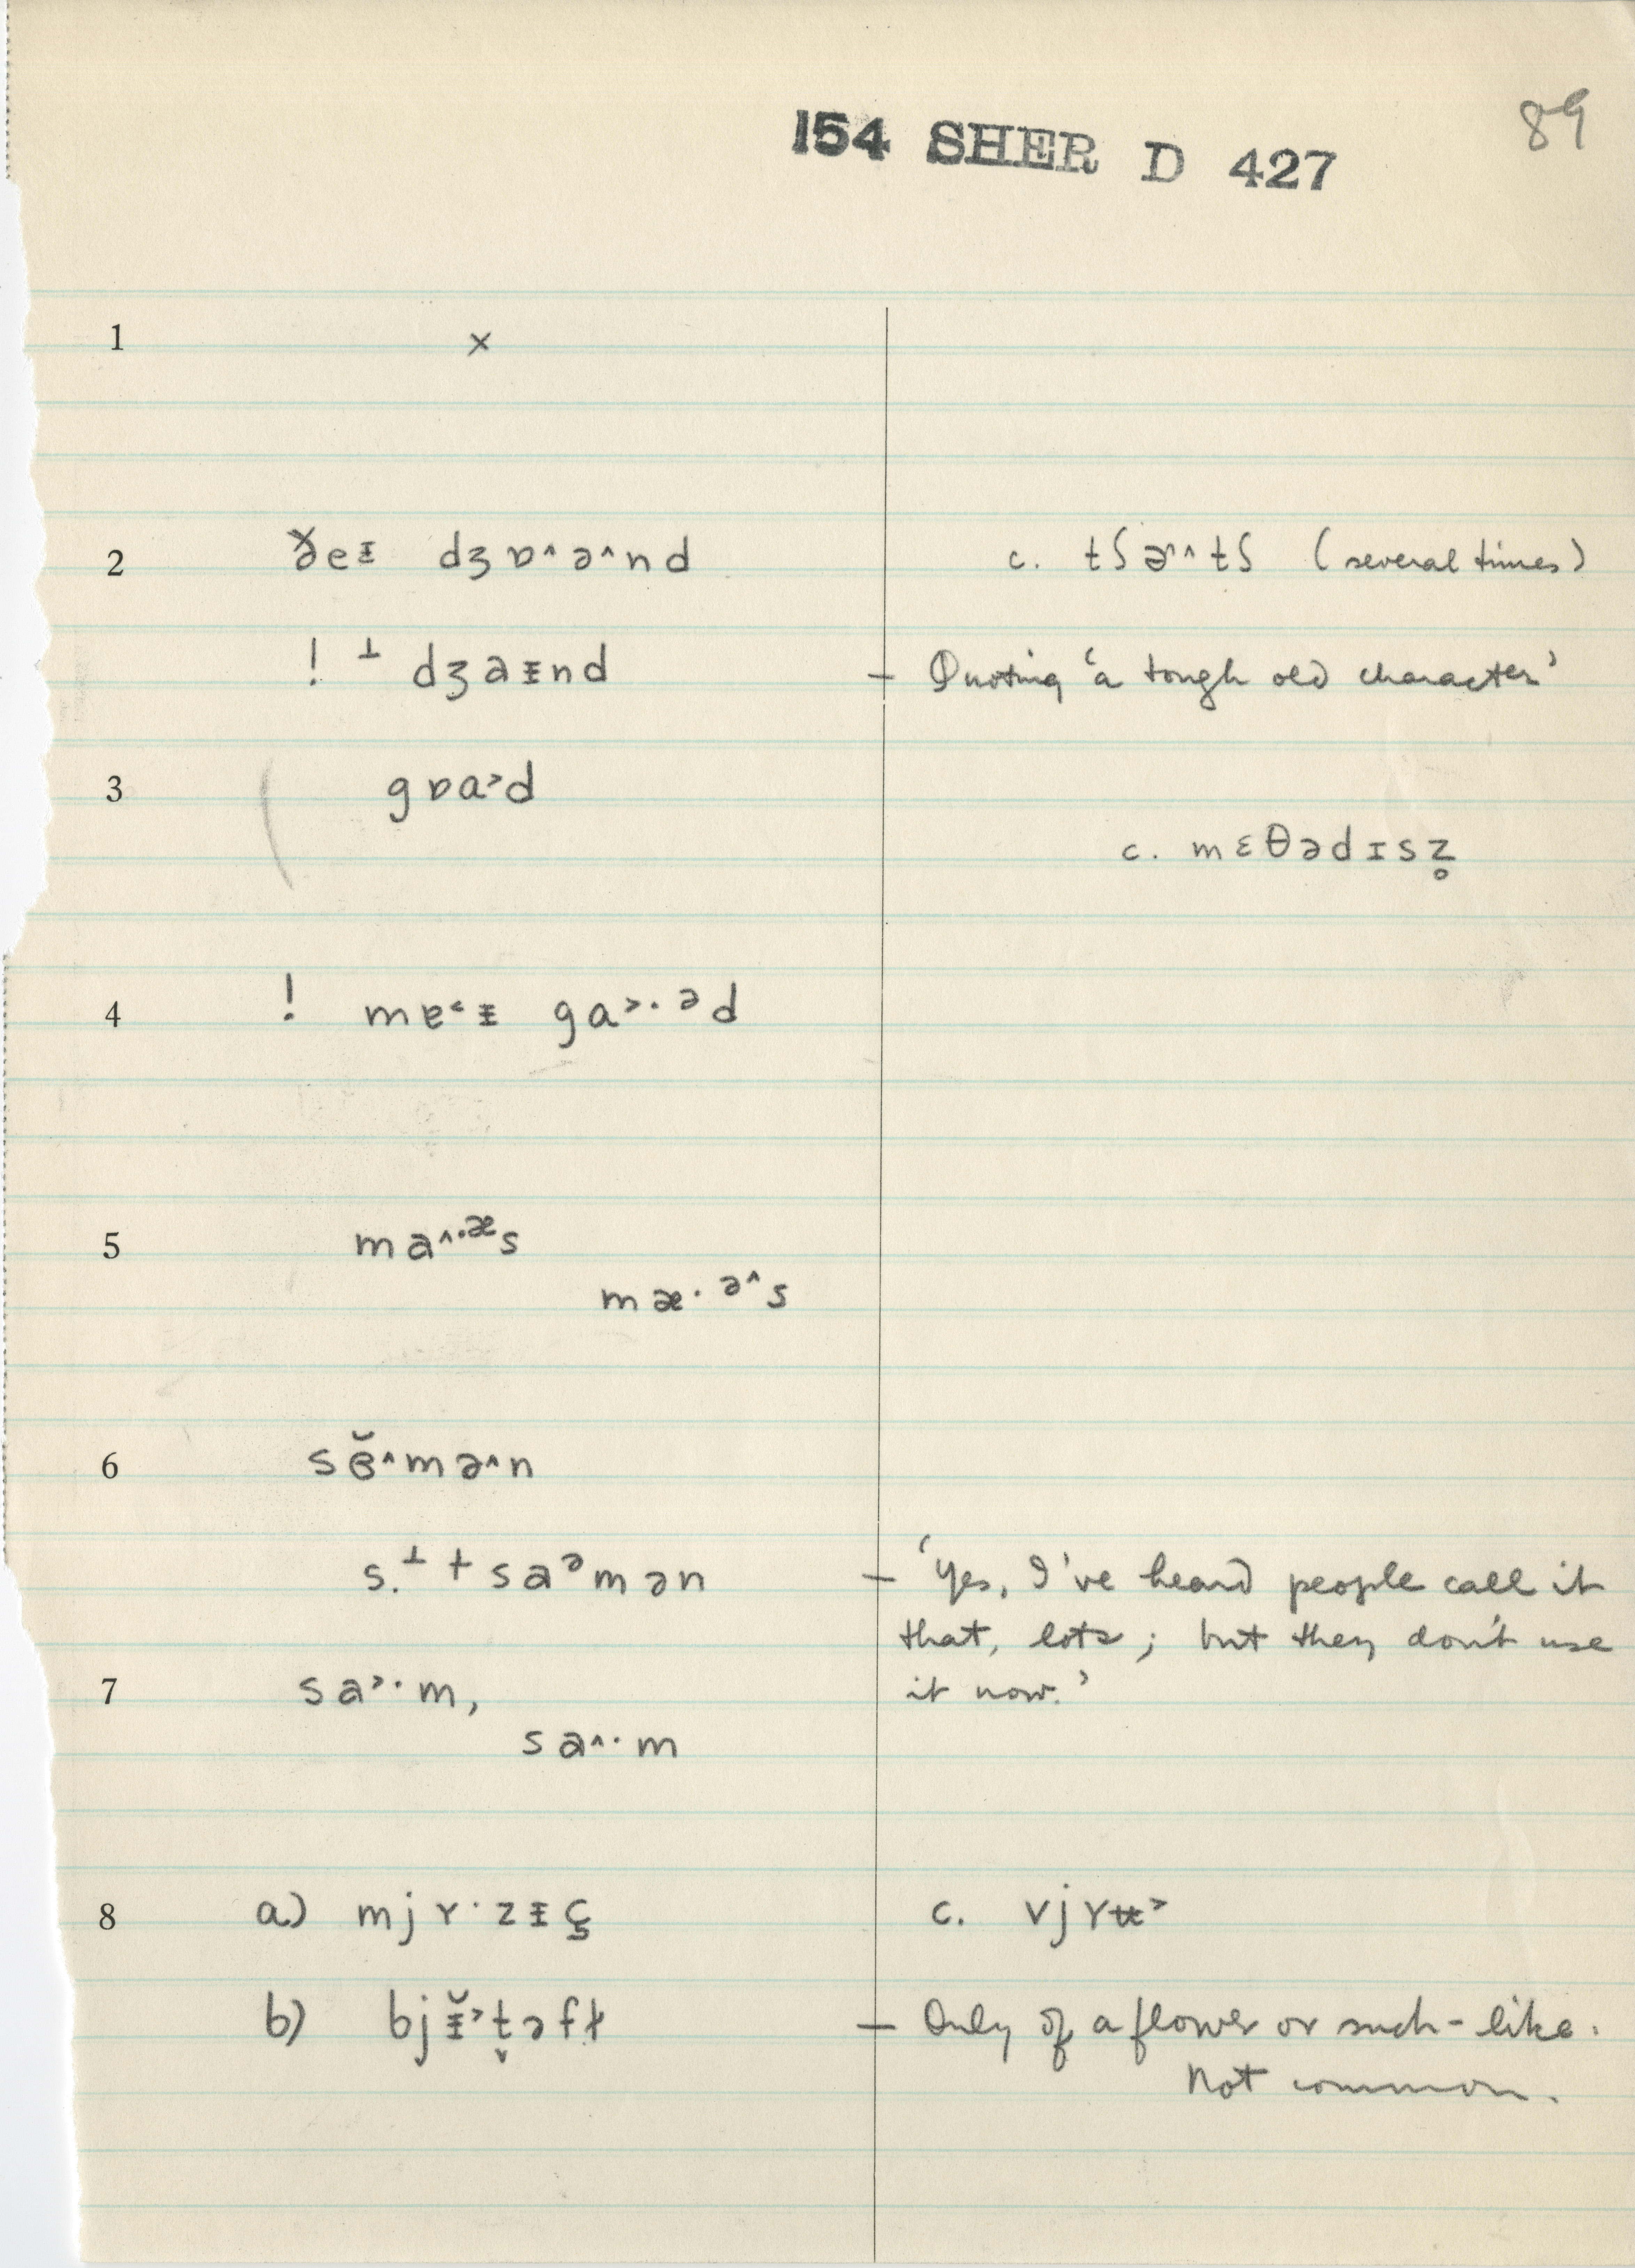 89
154 SHER D 427
1 ×
2 ðeᵻ dʒɒ^ə^nd c. tʃɚ^tʃ (several times)
! ⊥ dʒaᵻnd – Quoting 'a tough old character'
3 gɒɑ˃d
c. mɛθədɪsz̥
4 ! mɐ˂ᵻ gɑ˃·ᵊd
5 ma^·ᵆs
mæ·ᵊ^s
6 sɞ̆^mə^n
s.⊥ + saᵊmən – 'Yes, I've heard people call it
that, lots; but they don't use
7 sa˃·m, it now.'
sa^·m
8 a) mjʏ·zᵻç c. vjʏʉ˃
b) bjᵻ̆˃t̬əfɫ – Only of a flower or such-like.
Not common.